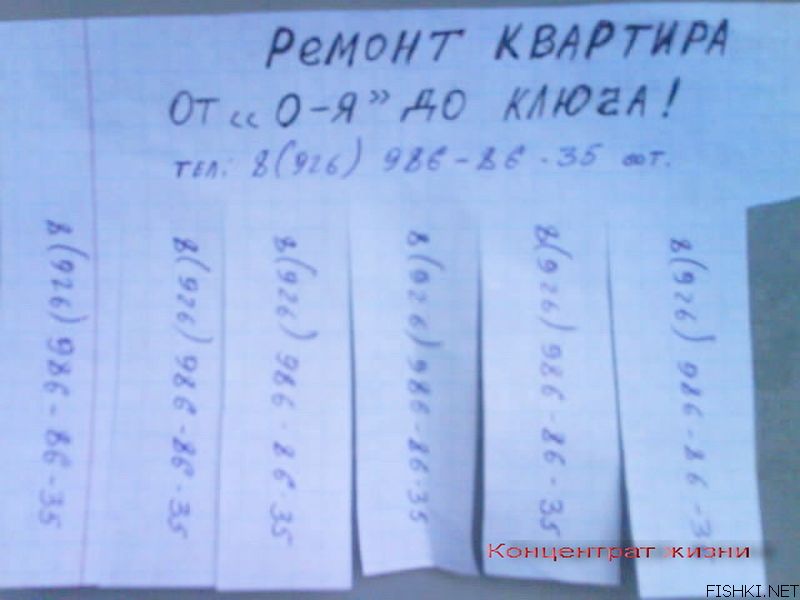 РЕМОНТ КВАРТИРА
ОТ „О-Я” ДО КЛЮЧА!
тел: 8(926) 986-86-35 сот.
8(926) 986-86-35
8(926) 986-86-35
8(926) 986-86-35
8(926) 986-86-35
8(926) 986-86-35
8(926) 986-86-3
Концентрат жизни
FISHKI.NET